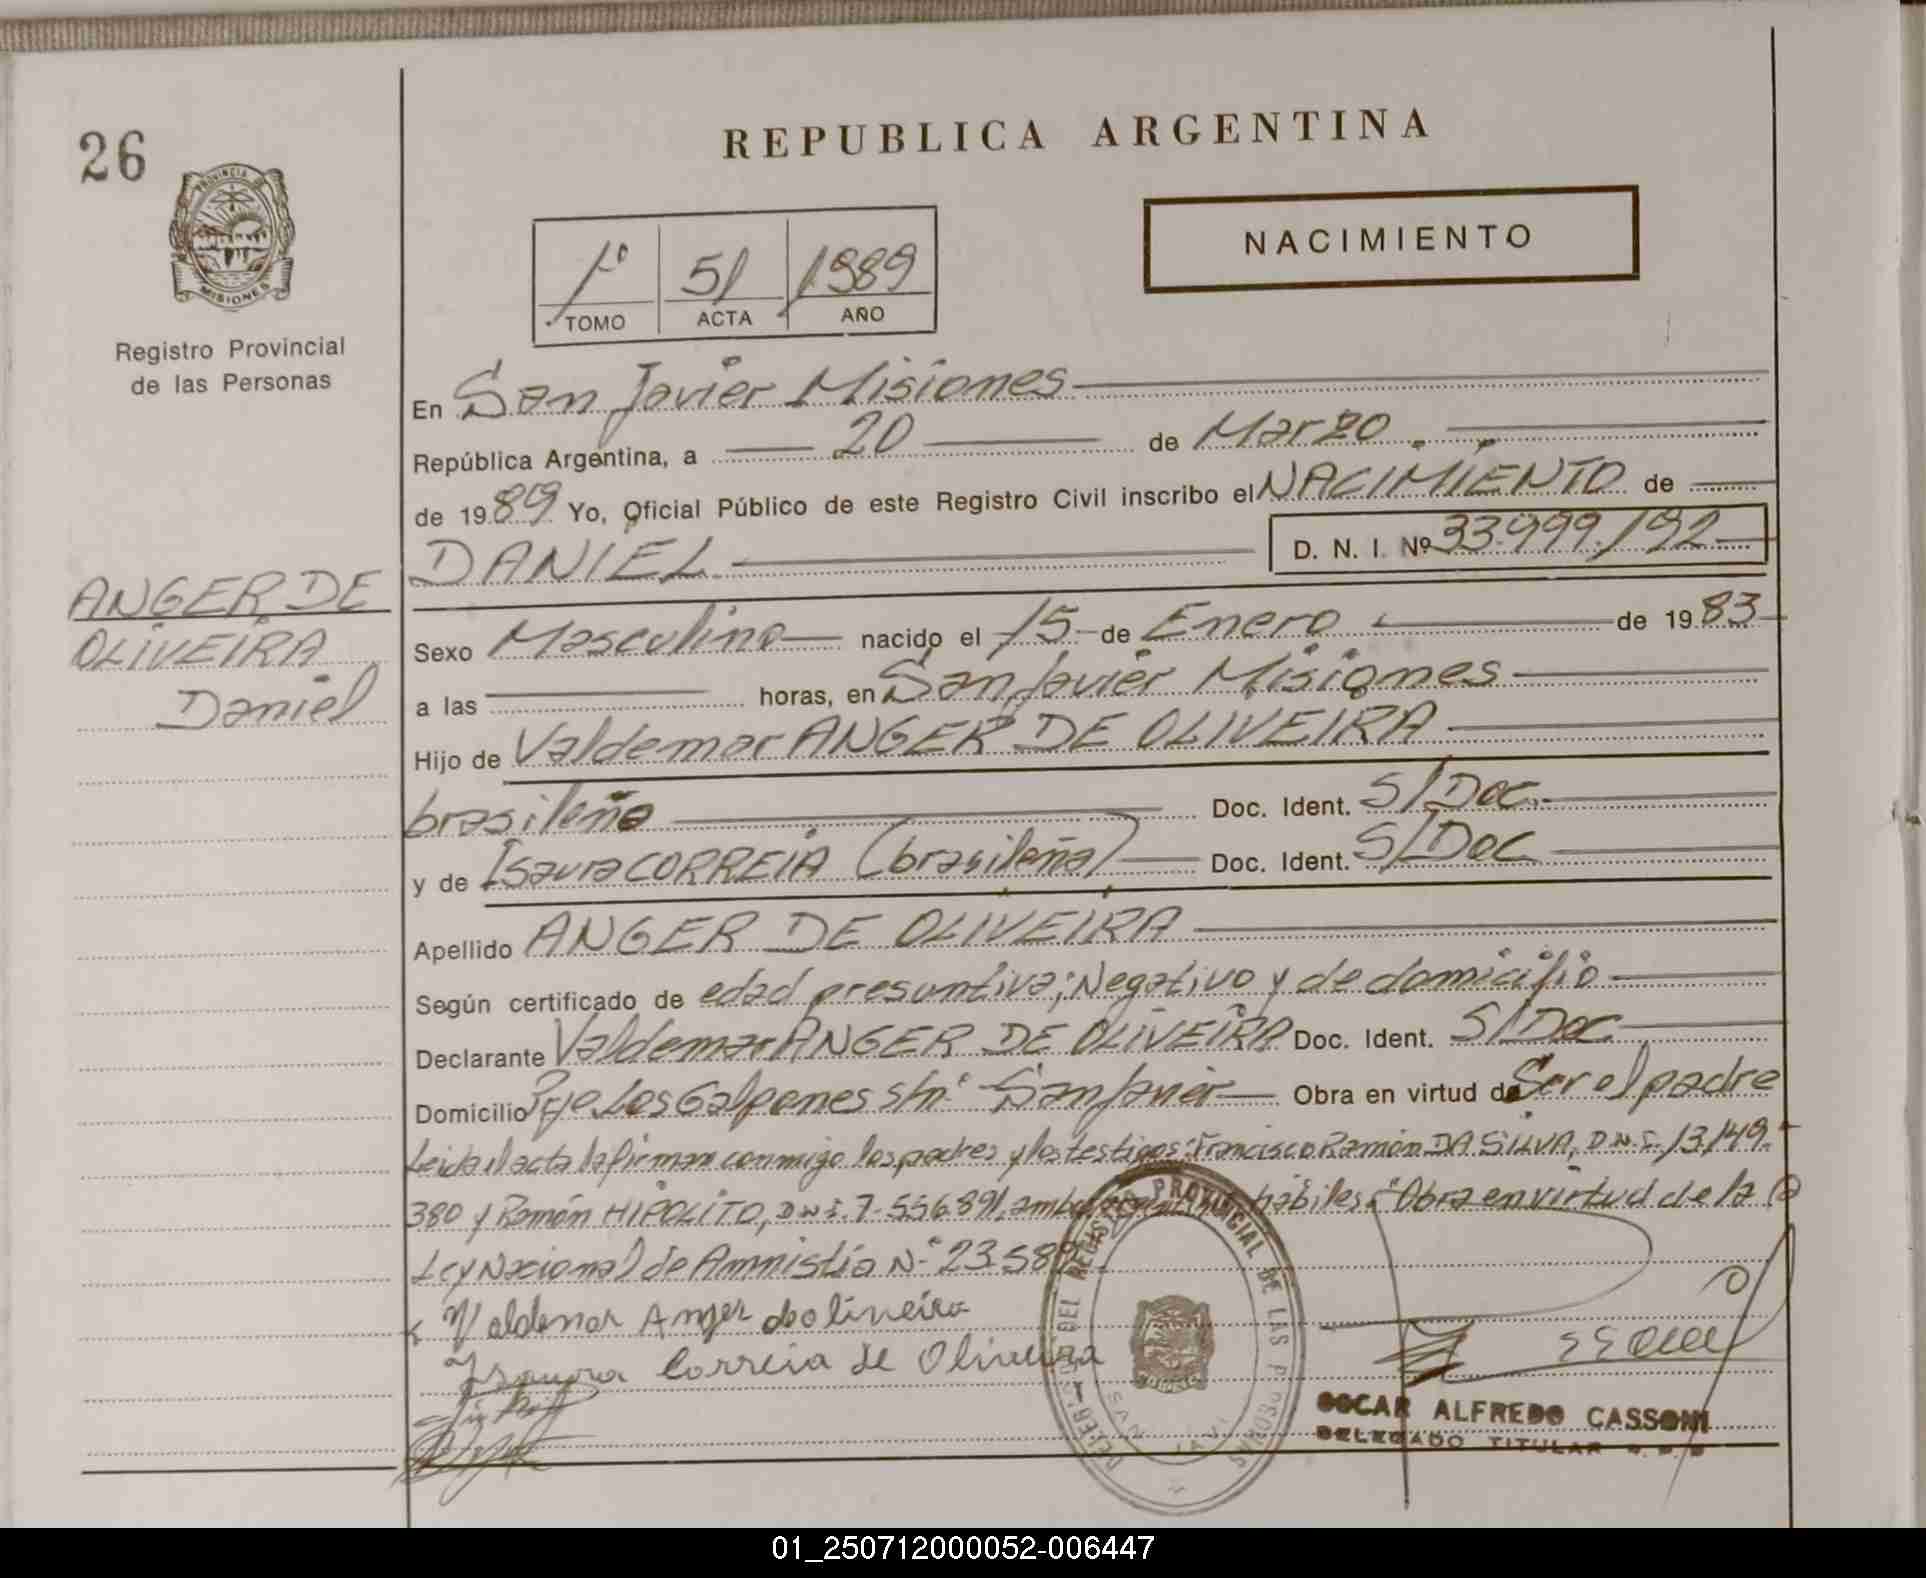 26
REPUBLICA ARGENTINA
NACIMIENTO
1º 51 1989
TOMO ACTA AÑO
PROVINCIA DE
MISIONES
Registro Provincial
de las Personas
En San Javier Misiones
República Argentina, a 20 de Marzo
de 1989 Yo, Oficial Público de este Registro Civil inscribo el NACIMIENTO de
DANIEL D. N. I. Nº 33.999.192
ANGER DE
OLIVEIRA
Daniel
Sexo Masculino nacido el 15 de Enero de 1983
a las horas, en San Javier Misiones
Hijo de Valdemar ANGER DE OLIVEIRA
brasileño Doc. Ident. S/Doc.
y de Isaura CORREIA (brasileña) Doc. Ident. S/Doc
Apellido ANGER DE OLIVEIRA
Según certificado de edad presuntiva; Negativo y de domicilio
Declarante Valdemar ANGER DE OLIVEIRA Doc. Ident. S/Doc.
Domicilio Pje Los Galpones s/nº San Javier Obra en virtud de Ser el padre
Leida el acta la firman conmigo los padres y los testigos: Francisco Ramón DA SILVA, D.N.I. 13.149.
380 y Ramón HIPOLITO, D.N.I. 7.556.891, hábiles. "Obra en virtud de la
Ley Nacional de Amnistia N° 23.589
Valdemar Anger de oliveira
Isaura Correia de Oliveira
DEL REGISTRO PROVINCIAL DE LAS PERSONAS
SAN JAVIER
OSCAR ALFREDO CASSONI
DELEGADO TITULAR
01_250712000052-006447